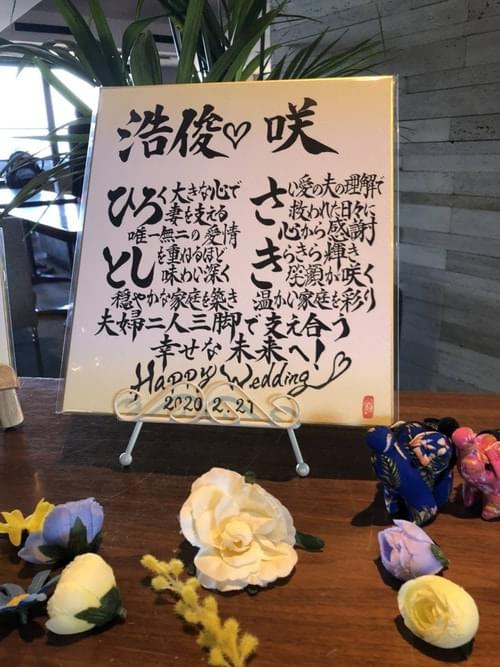 浩俊♡咲
ひろく大きな心で
妻を支える
唯一無二の愛情
としを重ねるほど
味わい深く
穏やかな家庭を築き
さい愛の夫の理解で
救われた日々に
心から感謝
きらきら輝き
笑顔が咲く
温かい家庭を彩り
夫婦二人三脚で支え合う
幸せな未来へ!
Happy Wedding
2020.2.21